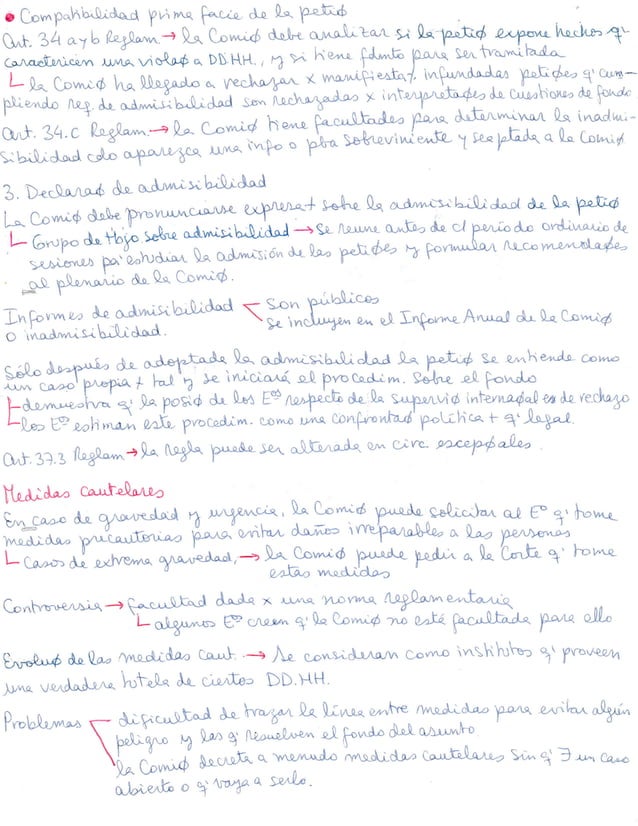 • Compatibilidad prima facie de la petiø
Art. 34 a y b Reglam. → la Comiø debe analizar si la petiø expone hechos q'
caractericen una violaø a DD.HH., y si tiene fdmto para ser tramitada
└ la Comiø ha llegado a rechazar x manifiestat infundadas petiøes q' cum-
pliendo req. de admisibilidad son rechazadas x interpretaøes de cuestiones de fondo
Art. 34.c Reglam. → la Comiø tiene facultades para determinar la inadmi-
sibilidad cdo aparezca una info o pba sobreviniente y sea ptada a la Comiø
3. Declaraø de admisibilidad
La Comiø debe pronunciarse expresat sobre la admisibilidad de la petiø
└ Grupo de tbjo sobre admisibilidad → se reune antes de c/ período ordinario de
sesiones pa' estudiar la admisión de las petiøes y formular recomendaøes
al plenario de la Comiø.
Informes de admisibilidad < son públicos
o inadmisibilidad. se incluyen en el Informe Anual de la Comiø
Sólo después de adoptada la admisibilidad la petiø se entiende como
un caso propiat tal y se iniciará el procedim. sobre el fondo
└ demuestra q' la posiø de los Eos respecto de la supervisiø internaøal es de rechazo
└ los Eos estiman este procedim. como una confrontaø política + q' legal.
Art. 37.3 Reglam → la regla puede ser alterada en circ. excepøales.
Medidas cautelares
En caso de gravedad y urgencia, la Comiø puede solicitar al Eo q' tome
medidas precautorias para evitar daños irreparables a las personas
└ Casos de extrema gravedad, → la Comiø puede pedir a la Corte q' tome
estas medidas
Controversia → facultad dada x una norma reglamentaria
└ algunos Eos creen q' la Comiø no está facultada para ello
Evoluø de las medidas caut. → Se consideran como institutos q' proveen
una verdadera tutela de ciertos DD.HH.
Problemas dificultad de trazar la línea entre medidas para evitar algún
peligro y las q' resuelven el fondo del asunto.
la Comiø decreta a menudo medidas cautelares sin q' ∃ un caso
abierto o q' vaya a serlo.